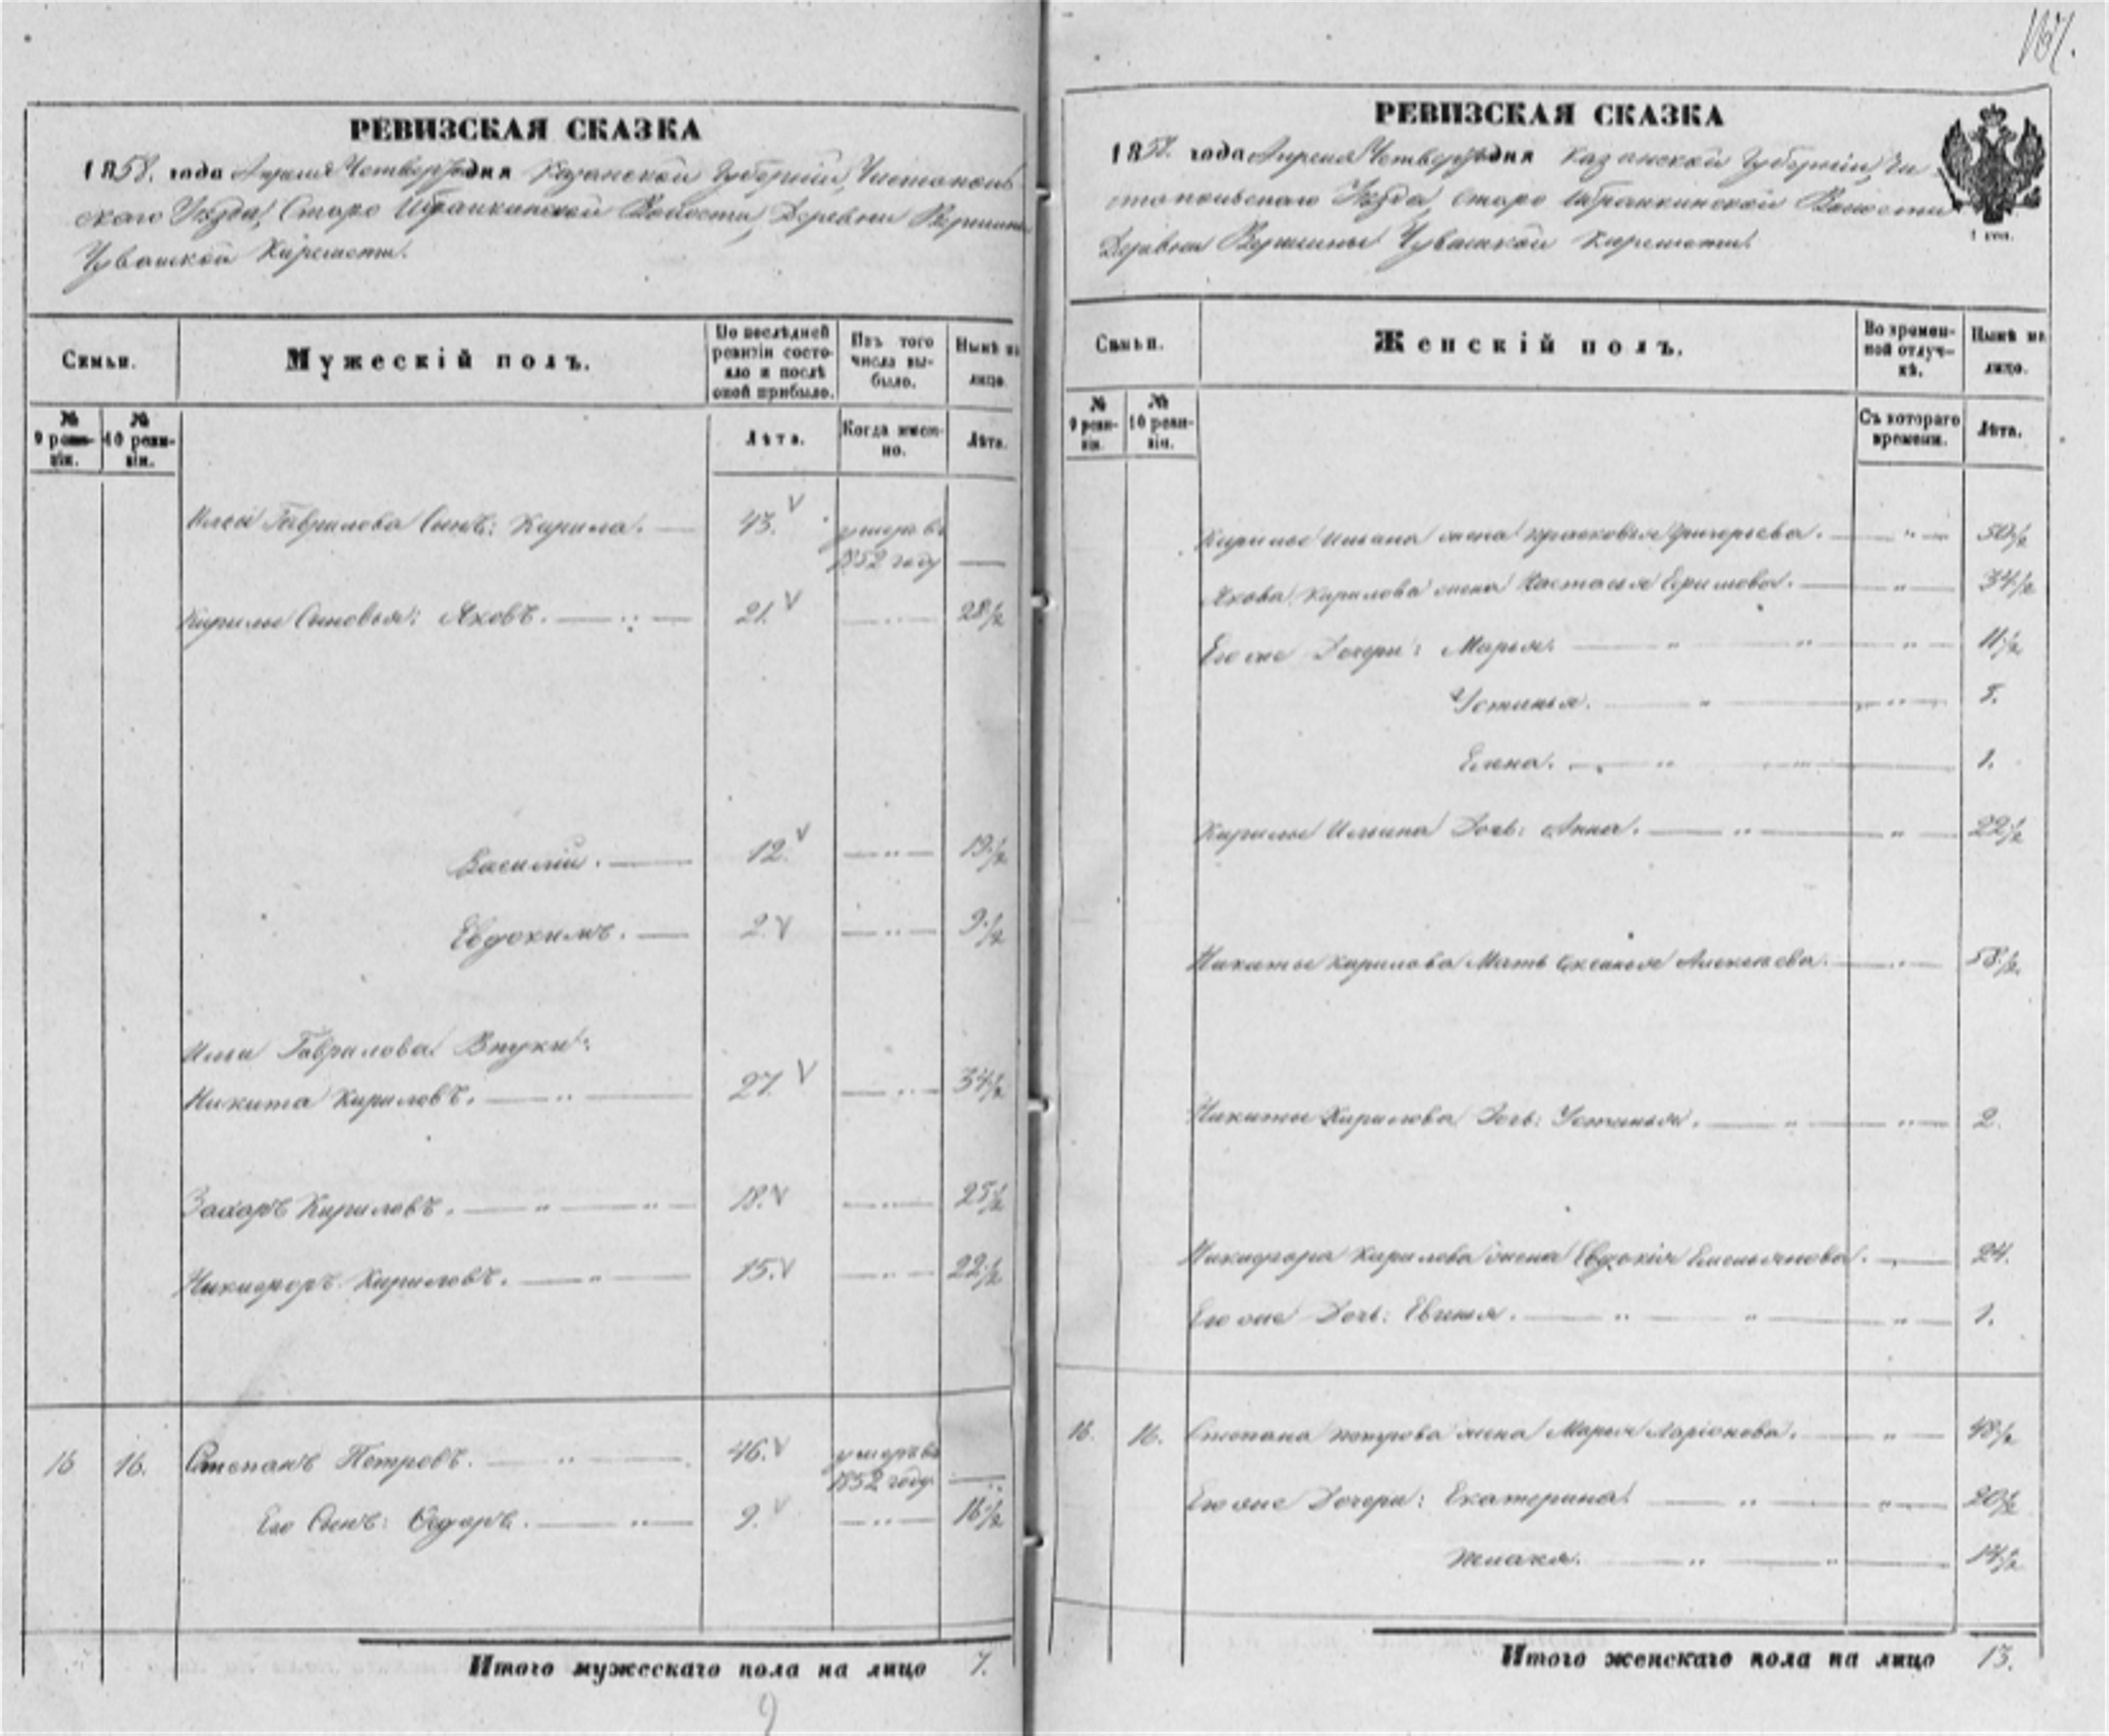 167.
РЕВИЗСКАЯ СКАЗКА
1858. года Апреля Четвертаго дня Казанской Губерніи, Чистополь
скаго Уѣзда, Старо Ибрайкинской Волости, Деревни Вершины
Чувашкой Киремети.
Семьи.
Мужескій полъ.
По послѣдней ревизіи состояло и послѣ оной прибыло.
Изъ того числа выбыло.
Нынѣ на лицо.
№ 9 ревизіи.
№ 10 ревизіи.
Лѣта.
Когда именно.
Лѣта.
Ильи Гаврилова Сынъ: Кирила. 43. умеръ въ
1852 году
Кирилы Сыновья: Яковъ. 21. 28½
Василій. 12. 19½
Евдокимъ. 2. 9½
Ильи Гаврилова Внуки:
Никита Кириловъ. 27. 34½
Захаръ Кириловъ. 18. 25½
Никифоръ Кириловъ. 15. 22½
16 16. Степанъ Петровъ. 46. умеръ въ
1852 году.
Его Сынъ: Ѳедоръ. 9. 16½
Итого мужескаго пола на лицо 7.
9
РЕВИЗСКАЯ СКАЗКА
1858. года Апреля Четвертаго дня Казанской Губерніи, Чи
стопольскаго Уѣзда, Старо Ибрайкинской Волости
Деревни Вершины Чувашкой Киремети.
Семьи.
Женскій полъ.
Во временной отлучкѣ.
Нынѣ на лицо.
№ 9 ревизіи.
№ 10 ревизіи.
Съ котораго времени.
Лѣта.
Кирилы Ильина жена Прасковья Григорьева. 50½
Якова Кирилова жена Настасья Ефимова. 34½
Его же Дочери: Марья. 11½
Устинья. 5.
Елена. 1.
Кирилы Ильина Дочь: Анна. 22½
Никиты Кирилова Мать Алексѣева. 58½
Никиты Кирилова Дочь: Устинья. 2.
Никифора Кирилова жена Евдокія Емельянова. 24.
Его же Дочь: Евгенья. 1.
16. 16. Степана Петрова жена Марья Ларіонова. 48½
Его же Дочери: Екатерина. 20½
14½
Итого женскаго пола на лицо 13.